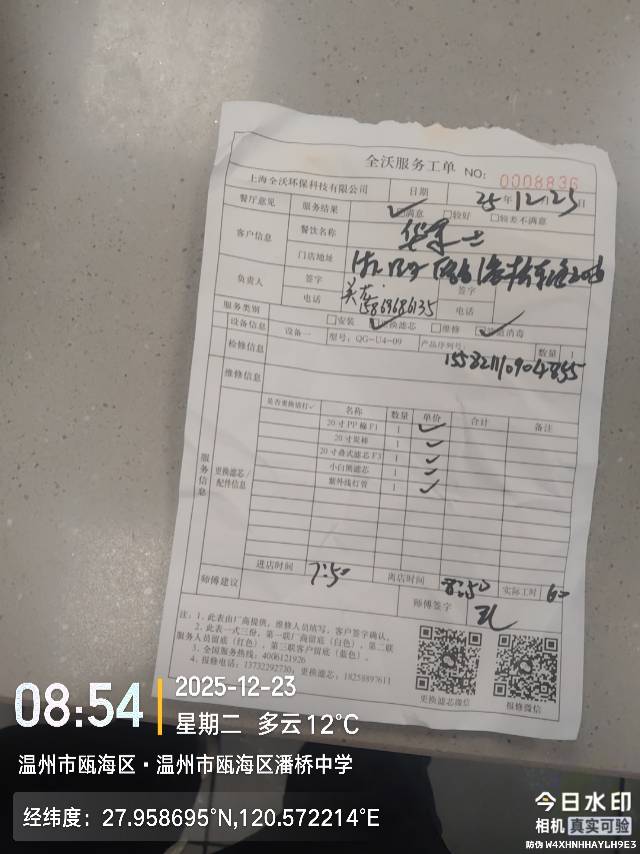 全沃服务工单 NO: 0008836
上海全沃环保科技有限公司 日期 25年12月23日
餐厅意见 服务结果 ✓满意 □较好 □较差不满意
客户信息 餐饮名称 华莱士
门店地址
负责人 签字 签字
电话 15869686135 电话
服务类别 □安装 ✓更换滤芯 □维修 ✓管道消毒
设备信息 设备一 型号:QG-U4-09 产品序列号: 数量 1
检修信息
维修信息
服务信息 更换滤芯/配件信息 是否更换请打✓ 名称 数量 单价 合计 备注
20寸PP棉F1 1 ✓
20寸炭棒 1 ✓
20寸叠式滤芯F3 1 ✓
小白熊滤芯 1 ✓
紫外线灯管 1 ✓
进店时间 7:50 离店时间 8:50 实际工时 60
师傅建议 师傅签字
注:1、此表由厂商提供,维修人员填写,客户签字确认。
2、此表一式三份,第一联厂商留底(白色),第二联
服务人员留底(红色),第三联客户留底(蓝色)。
3、全国服务热线:4006121926
4、报修电话:13732292730;更换滤芯:18258897611
更换滤芯微信 报修微信
08:54 2025-12-23
星期二 多云 12°C
温州市瓯海区·温州市瓯海区潘桥中学
经纬度:27.958695°N,120.572214°E
今日水印
相机 真实可验
防伪 W4XHNHHAYLH9E3